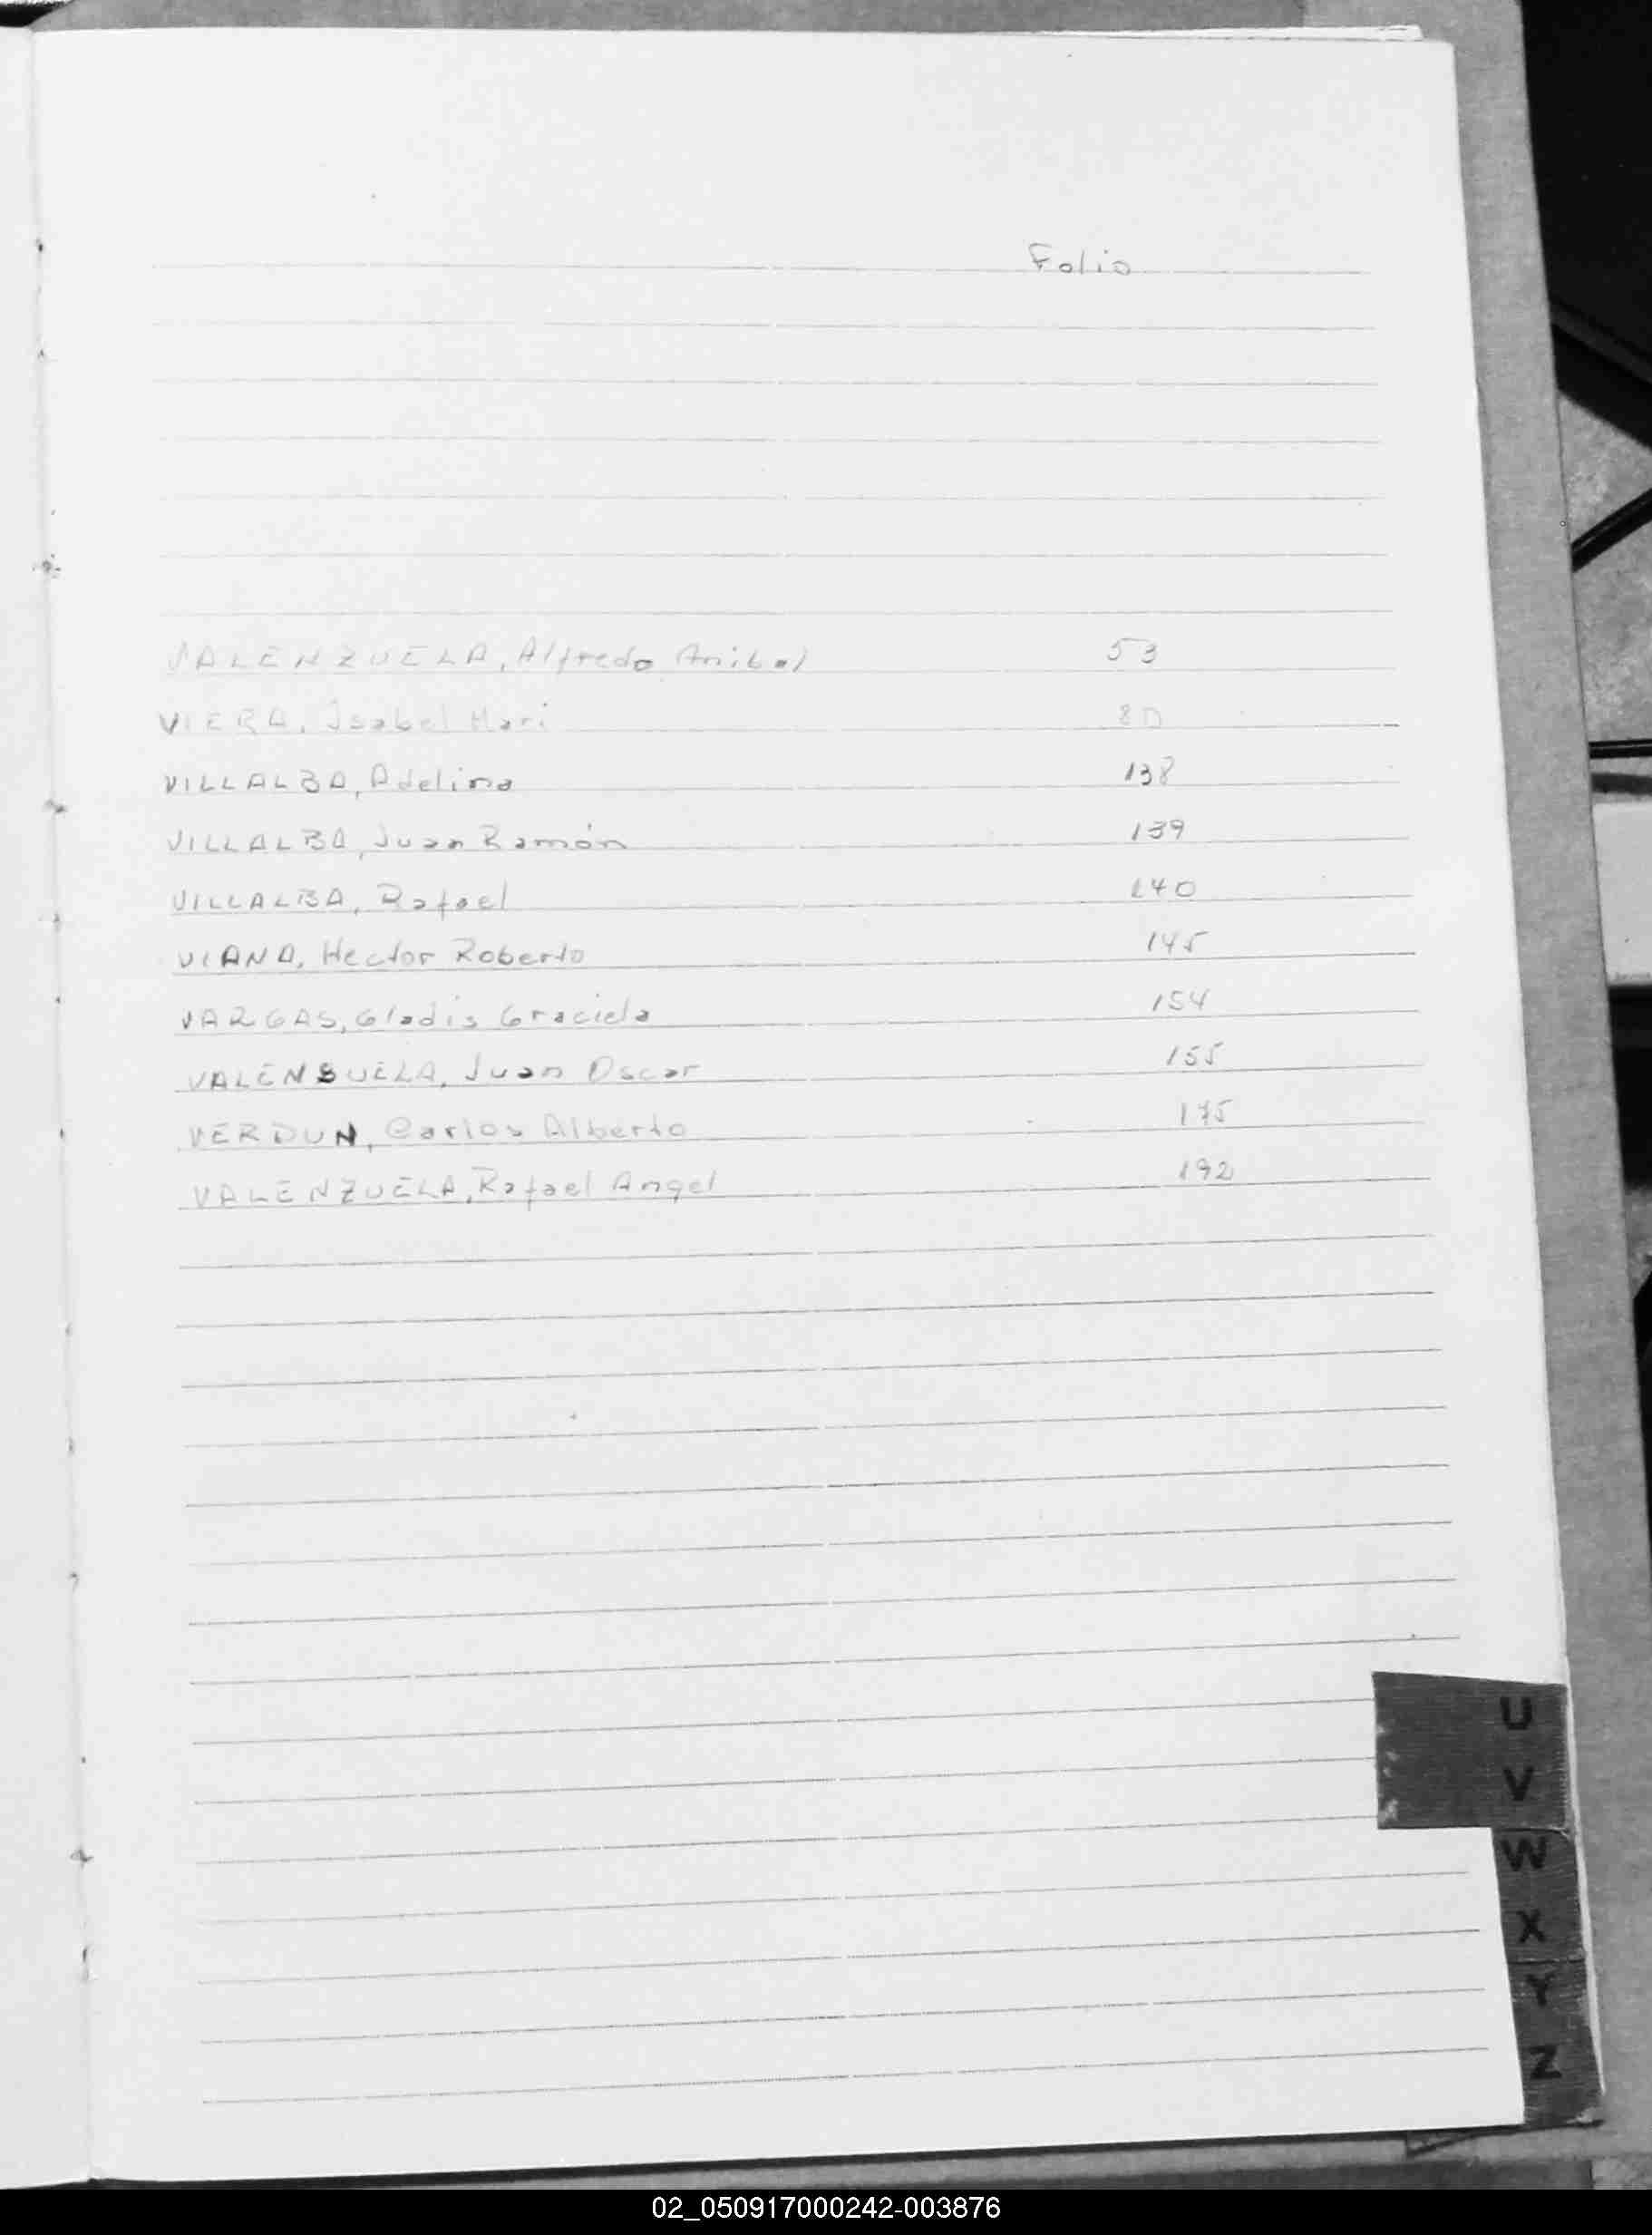 Folio
VALENZUELA, Alfredo Anibal 53
VIERA, Isabel Mari 80
VILLALBA, Adelina 138
VILLALBA, Juan Ramón 139
VILLALBA, Rafael 140
VIANA, Hector Roberto 145
VARGAS, Gladis Graciela 154
VALENSUELA, Juan Oscar 155
VERDUN, Carlos Alberto 175
VALENZUELA, Rafael Angel 192
U
V
W
X
Y
Z
02_050917000242-003876